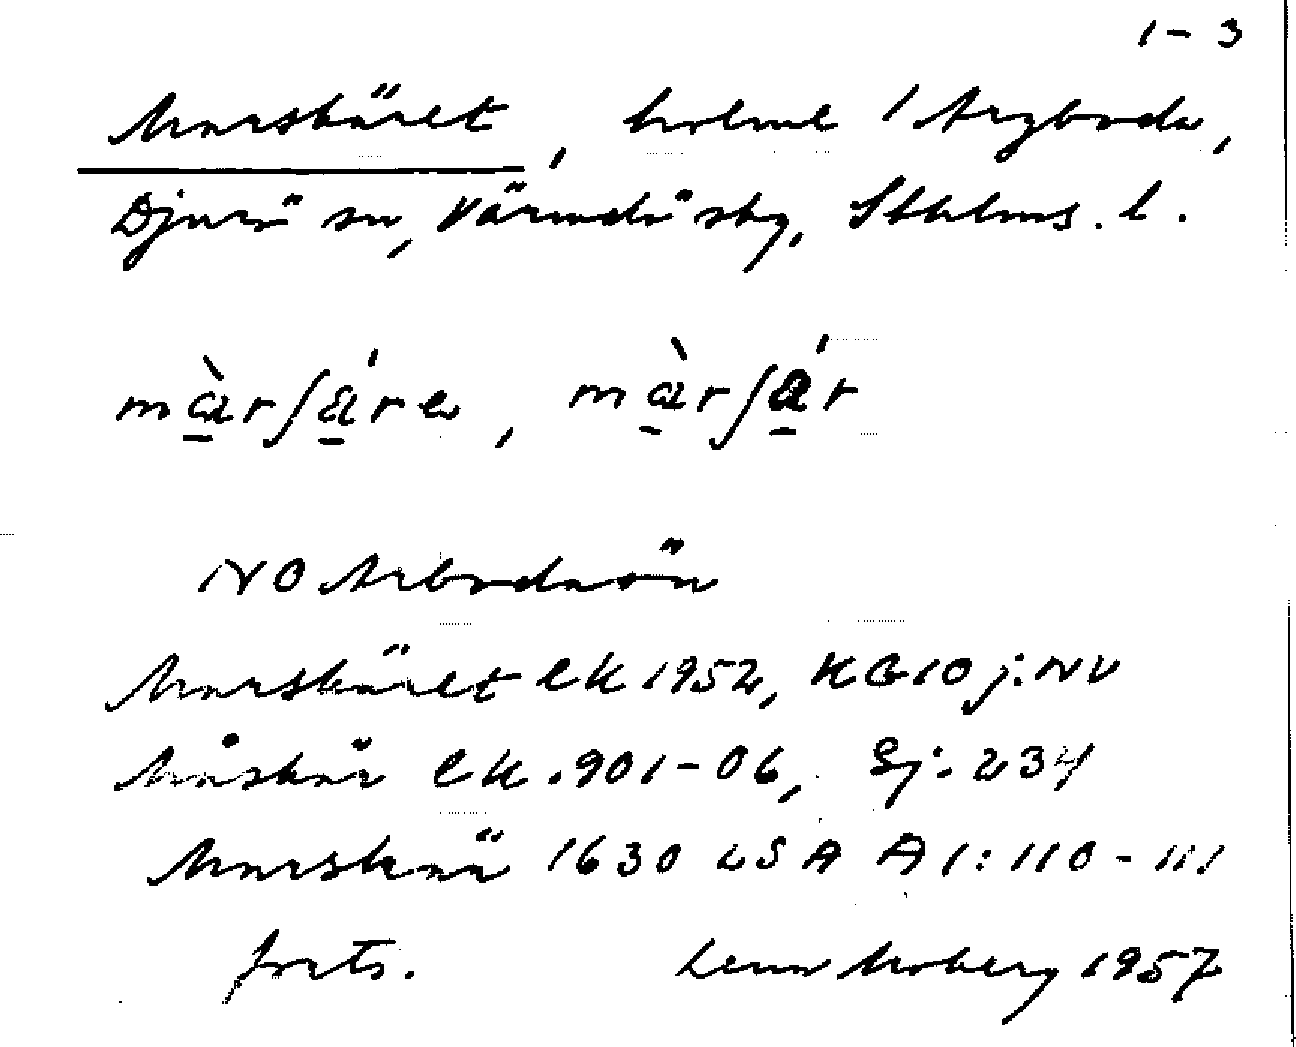 1-3
Marskäret, holme / Argboda,
Djurö sn, Värmdö skg, Sthlms. l.
màrʃä́re, màrʃä́r
NO Arbodaön
Marskäret EK 1952, KG 10 j: NV
Måskär EK 1901-06, Sj. 234
Marskär 1630 LSA A 1: 110-111
forts. Lena Moberg 1957